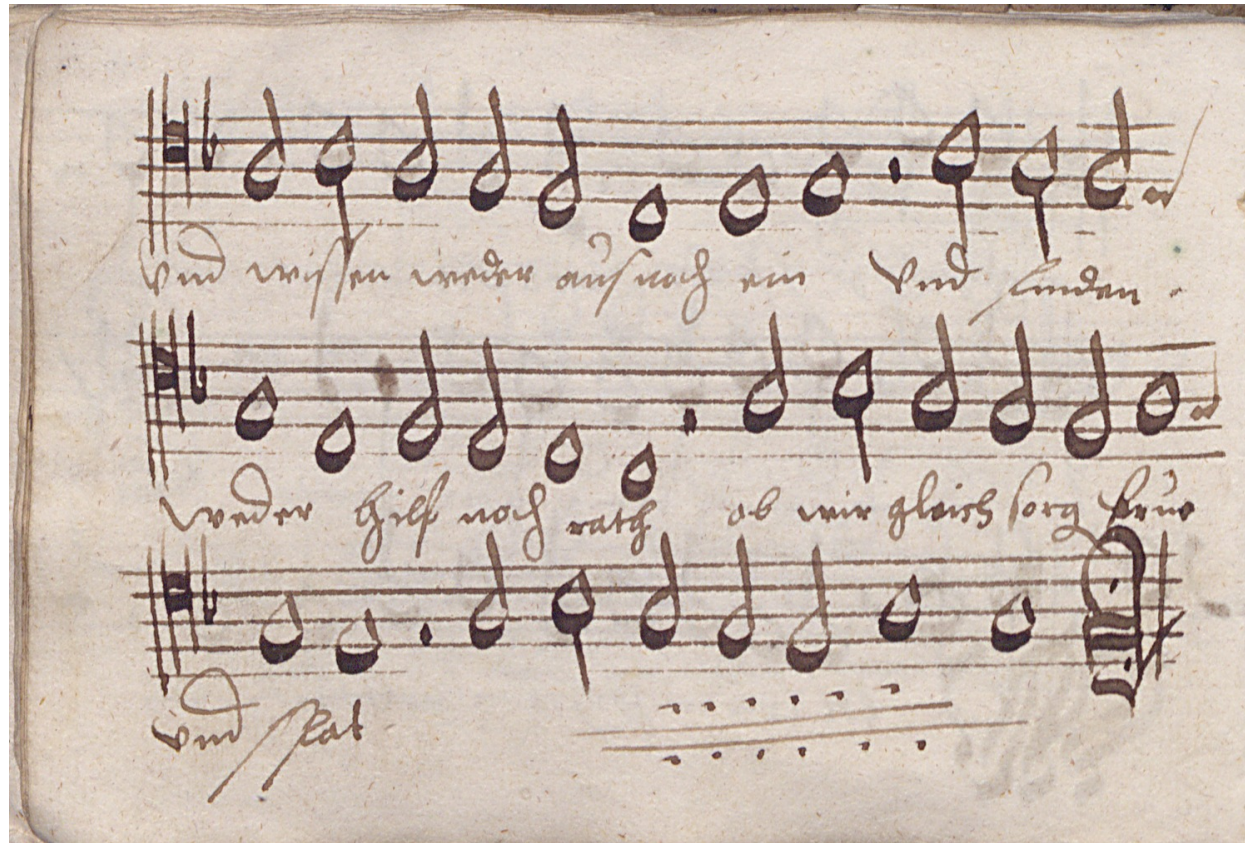 vnd wissen weder aus noch ein vnd finden
weder hilf noch rath ob wir gleich sorg frue
vnd spat